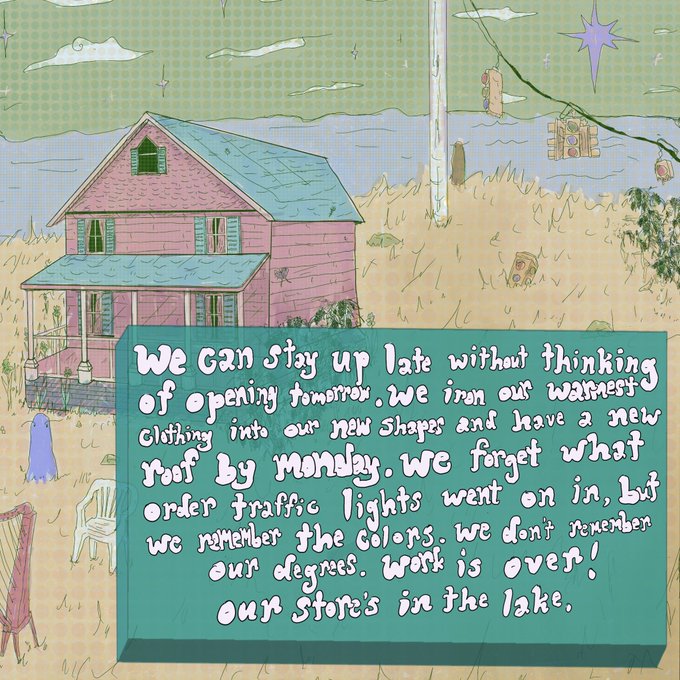 We can stay up late without thinking
of opening tomorrow. We iron our warmest
clothing into our new shapes and have a new
roof by monday. We forget what
order traffic lights went on in, but
we remember the colors. We don't remember
our degrees. Work is over!
Our store's in the lake.